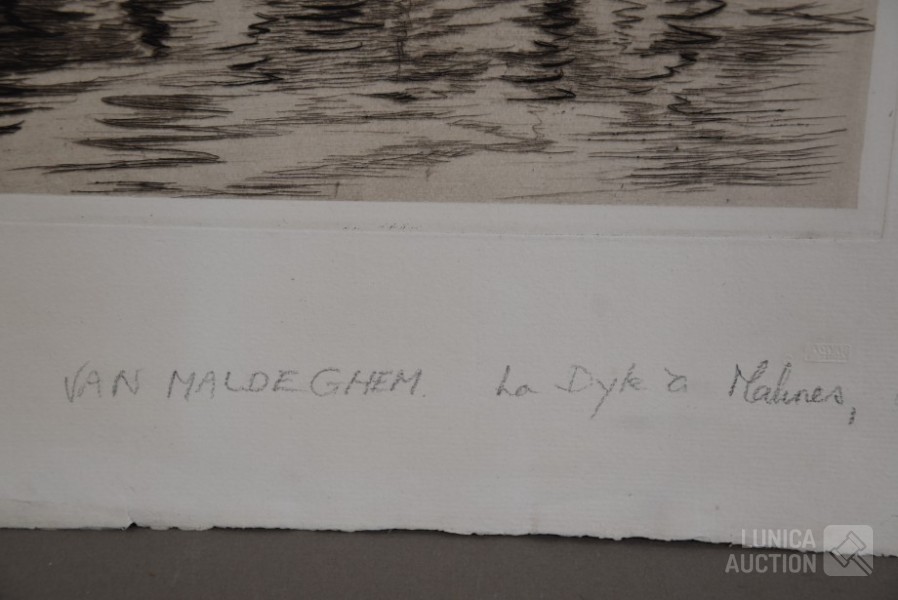 VAN MALDEGHEM. La Dyle à Malines,
LUNICA
AUCTION